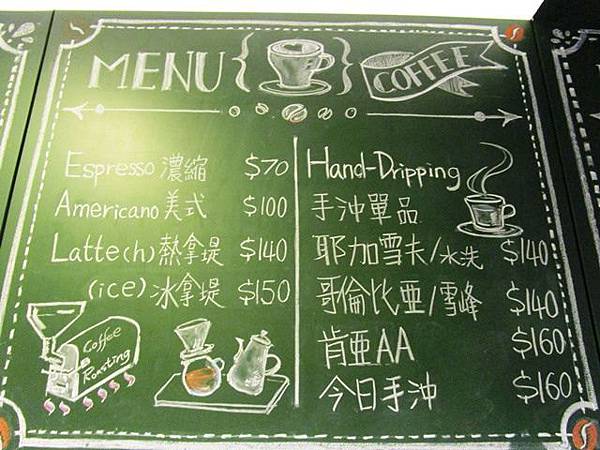 MENU
COFFEE
Espresso 濃縮 $70
Americano 美式 $100
Latte(h) 熱拿堤 $140
(ice) 冰拿堤 $150
Coffee
Roasting
Hand-Dripping
手沖單品
耶加雪夫/水洗 $140
哥倫比亞/雪峰 $140
肯亞AA $160
今日手沖 $160